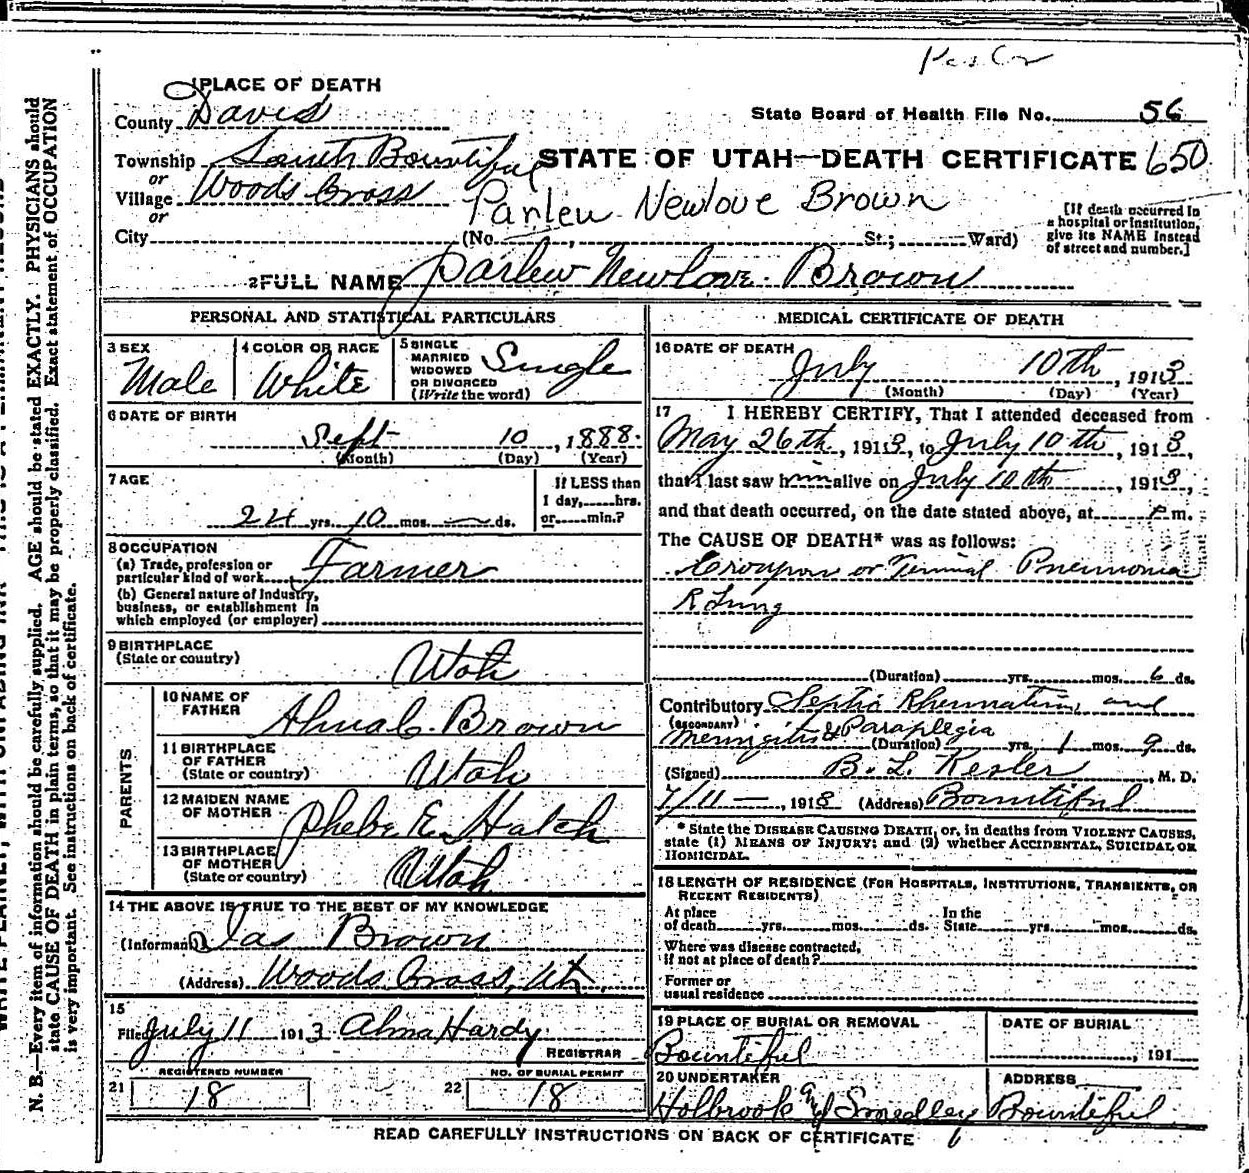 PLACE OF DEATH
County Davis
State Board of Health File No. 56
Township South Bountiful
or
STATE OF UTAH—DEATH CERTIFICATE 650
Village Woods Cross
or
Parlew Newlove Brown
City (No. , St.; Ward)
[If death occurred in
a hospital or institution,
give its NAME instead
of street and number.]
2 FULL NAME Parlew Newlove Brown
PERSONAL AND STATISTICAL PARTICULARS
3 SEX
Male
4 COLOR OR RACE
White
5 SINGLE
MARRIED
WIDOWED
OR DIVORCED
(Write the word)
Single
6 DATE OF BIRTH
Sept 10, 1888.
(Month) (Day) (Year)
7 AGE
24 yrs. 10 mos. — ds.
If LESS than
1 day, hrs.
or min.?
8 OCCUPATION
(a) Trade, profession or
particular kind of work Farmer
(b) General nature of Industry,
business, or establishment in
which employed (or employer)
9 BIRTHPLACE
(State or country) Utah
PARENTS
10 NAME OF
FATHER Alma C. Brown
11 BIRTHPLACE
OF FATHER
(State or country) Utah
12 MAIDEN NAME
OF MOTHER Phebe E. Hatch
13 BIRTHPLACE
OF MOTHER
(State or country) Utah
14 THE ABOVE IS TRUE TO THE BEST OF MY KNOWLEDGE
(Informant) Jas Brown
(Address) Woods Cross, Ut.
15
Filed July 11 1913 Alma Hardy
REGISTRAR
REGISTERED NUMBER
21 18
NO. OF BURIAL PERMIT
22 18
MEDICAL CERTIFICATE OF DEATH
16 DATE OF DEATH
July 10th, 1913
(Month) (Day) (Year)
17 I HEREBY CERTIFY, That I attended deceased from
May 26th, 1913, to July 10th, 1913,
that I last saw him alive on July 10th, 1913,
and that death occurred, on the date stated above, at P m.
The CAUSE OF DEATH* was as follows:
Croupous or Terminal Pneumonia
R Lung
(Duration) yrs. mos. 6 ds.
Contributory Septic Rheumatism and
(SECONDARY) Meningitis & Paraplegia
(Duration) yrs. 1 mos. 9 ds.
(Signed) B. L. Kesler, M. D.
7/11—, 1913 (Address) Bountiful
* State the DISEASE CAUSING DEATH, or, in deaths from VIOLENT CAUSES,
state (1) MEANS OF INJURY; and (2) whether ACCIDENTAL, SUICIDAL OR
HOMICIDAL.
18 LENGTH OF RESIDENCE (FOR HOSPITALS, INSTITUTIONS, TRANSIENTS, OR
RECENT RESIDENTS)
At place
of death yrs. mos. ds.
In the
State yrs. mos. ds.
Where was disease contracted,
if not at place of death?
Former or
usual residence
19 PLACE OF BURIAL OR REMOVAL
Bountiful
DATE OF BURIAL
, 191
20 UNDERTAKER
Holbrook and Smedley
ADDRESS
Bountiful
READ CAREFULLY INSTRUCTIONS ON BACK OF CERTIFICATE
N. B.—Every item of information should be carefully supplied. AGE should be stated EXACTLY. PHYSICIANS should
state CAUSE OF DEATH in plain terms, so that it may be properly classified. Exact statement of OCCUPATION
is very important. See instructions on back of certificate.